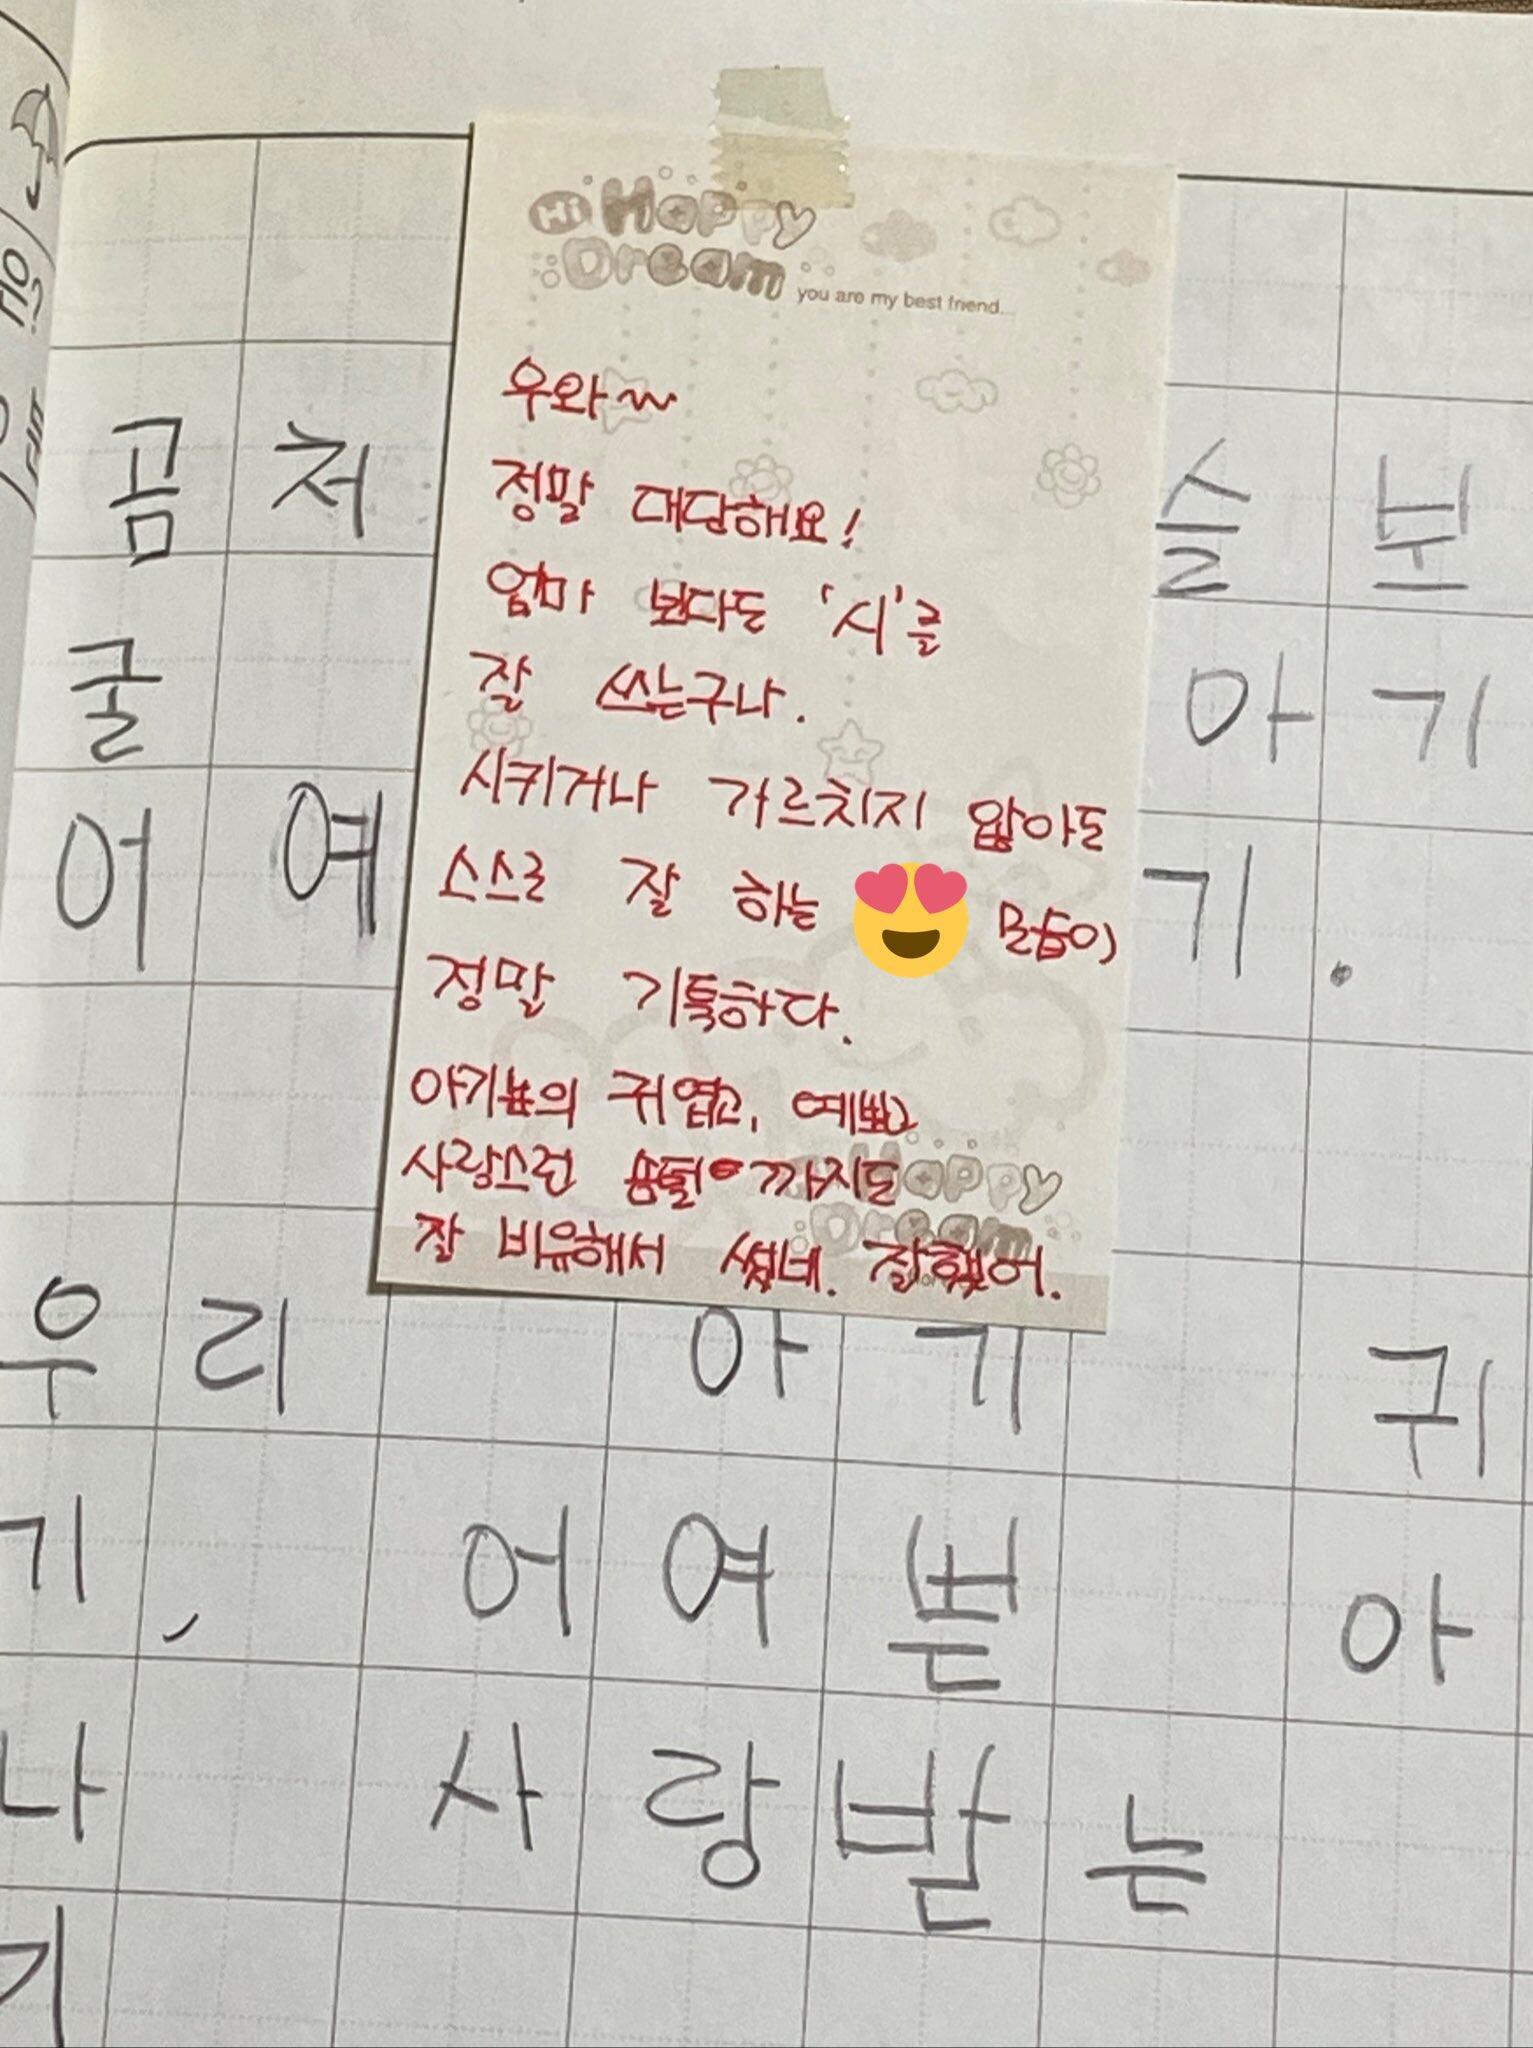 Hi Happy
Dream
you are my best friend...
우와~
정말 대단해요!
엄마 보다도 '시'를
잘 쓰는구나.
시키거나 가르치지 않아도
스스로 잘 하는 😍 모습이
정말 기특하다.
아기뇨의 귀엽고, 예쁘고
사랑스런 까지도
잘 비유해서 썼네. 잘했어.
Happy
Dream
곰 처 슬 보
굴 아 기
어 여 기.
우 리 아 기 귀
기, 어 여 쁜 아
나 사 랑 받 는
기